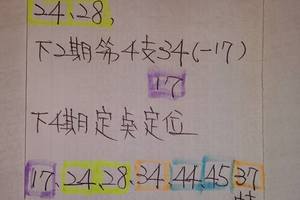 24、28,
下2期第4支34(-17)
17
下4期定英定位
17、24、28、34、44、45 37
特